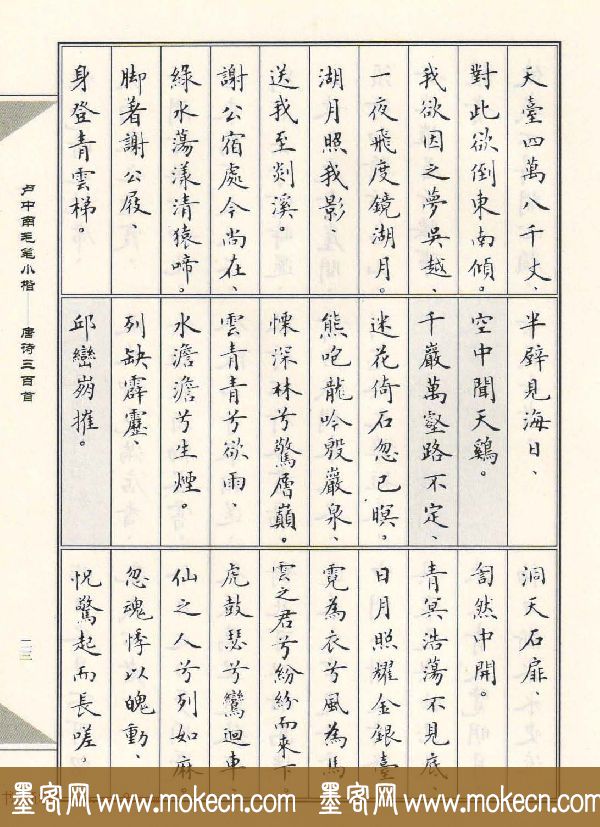 天臺四萬八千丈、
對此欲倒東南傾。
我欲因之夢吳越、
一夜飛度鏡湖月。
湖月照我影、
送我至剡溪。
謝公宿處今尚在、
綠水蕩漾清猿啼。
脚著謝公屐、
身登青雲梯。
半壁見海日、
空中聞天鷄。
千巖萬壑路不定、
迷花倚石忽已暝。
熊咆龍吟殷巖泉、
慄深林兮驚層巔。
雲青青兮欲雨、
水澹澹兮生煙。
列缺霹靂、
邱巒崩摧。
洞天石扉、
訇然中開。
青冥浩蕩不見底、
日月照耀金銀臺
霓為衣兮風為馬
雲之君兮紛紛而來下。
虎鼓瑟兮鸞迴車、
仙之人兮列如麻。
忽魂悸以魄動、
怳驚起而長嗟。
卢中南毛笔小楷——唐诗三百首
二三
墨客网 www.mokecn.com 墨客网 www.mokecn.com